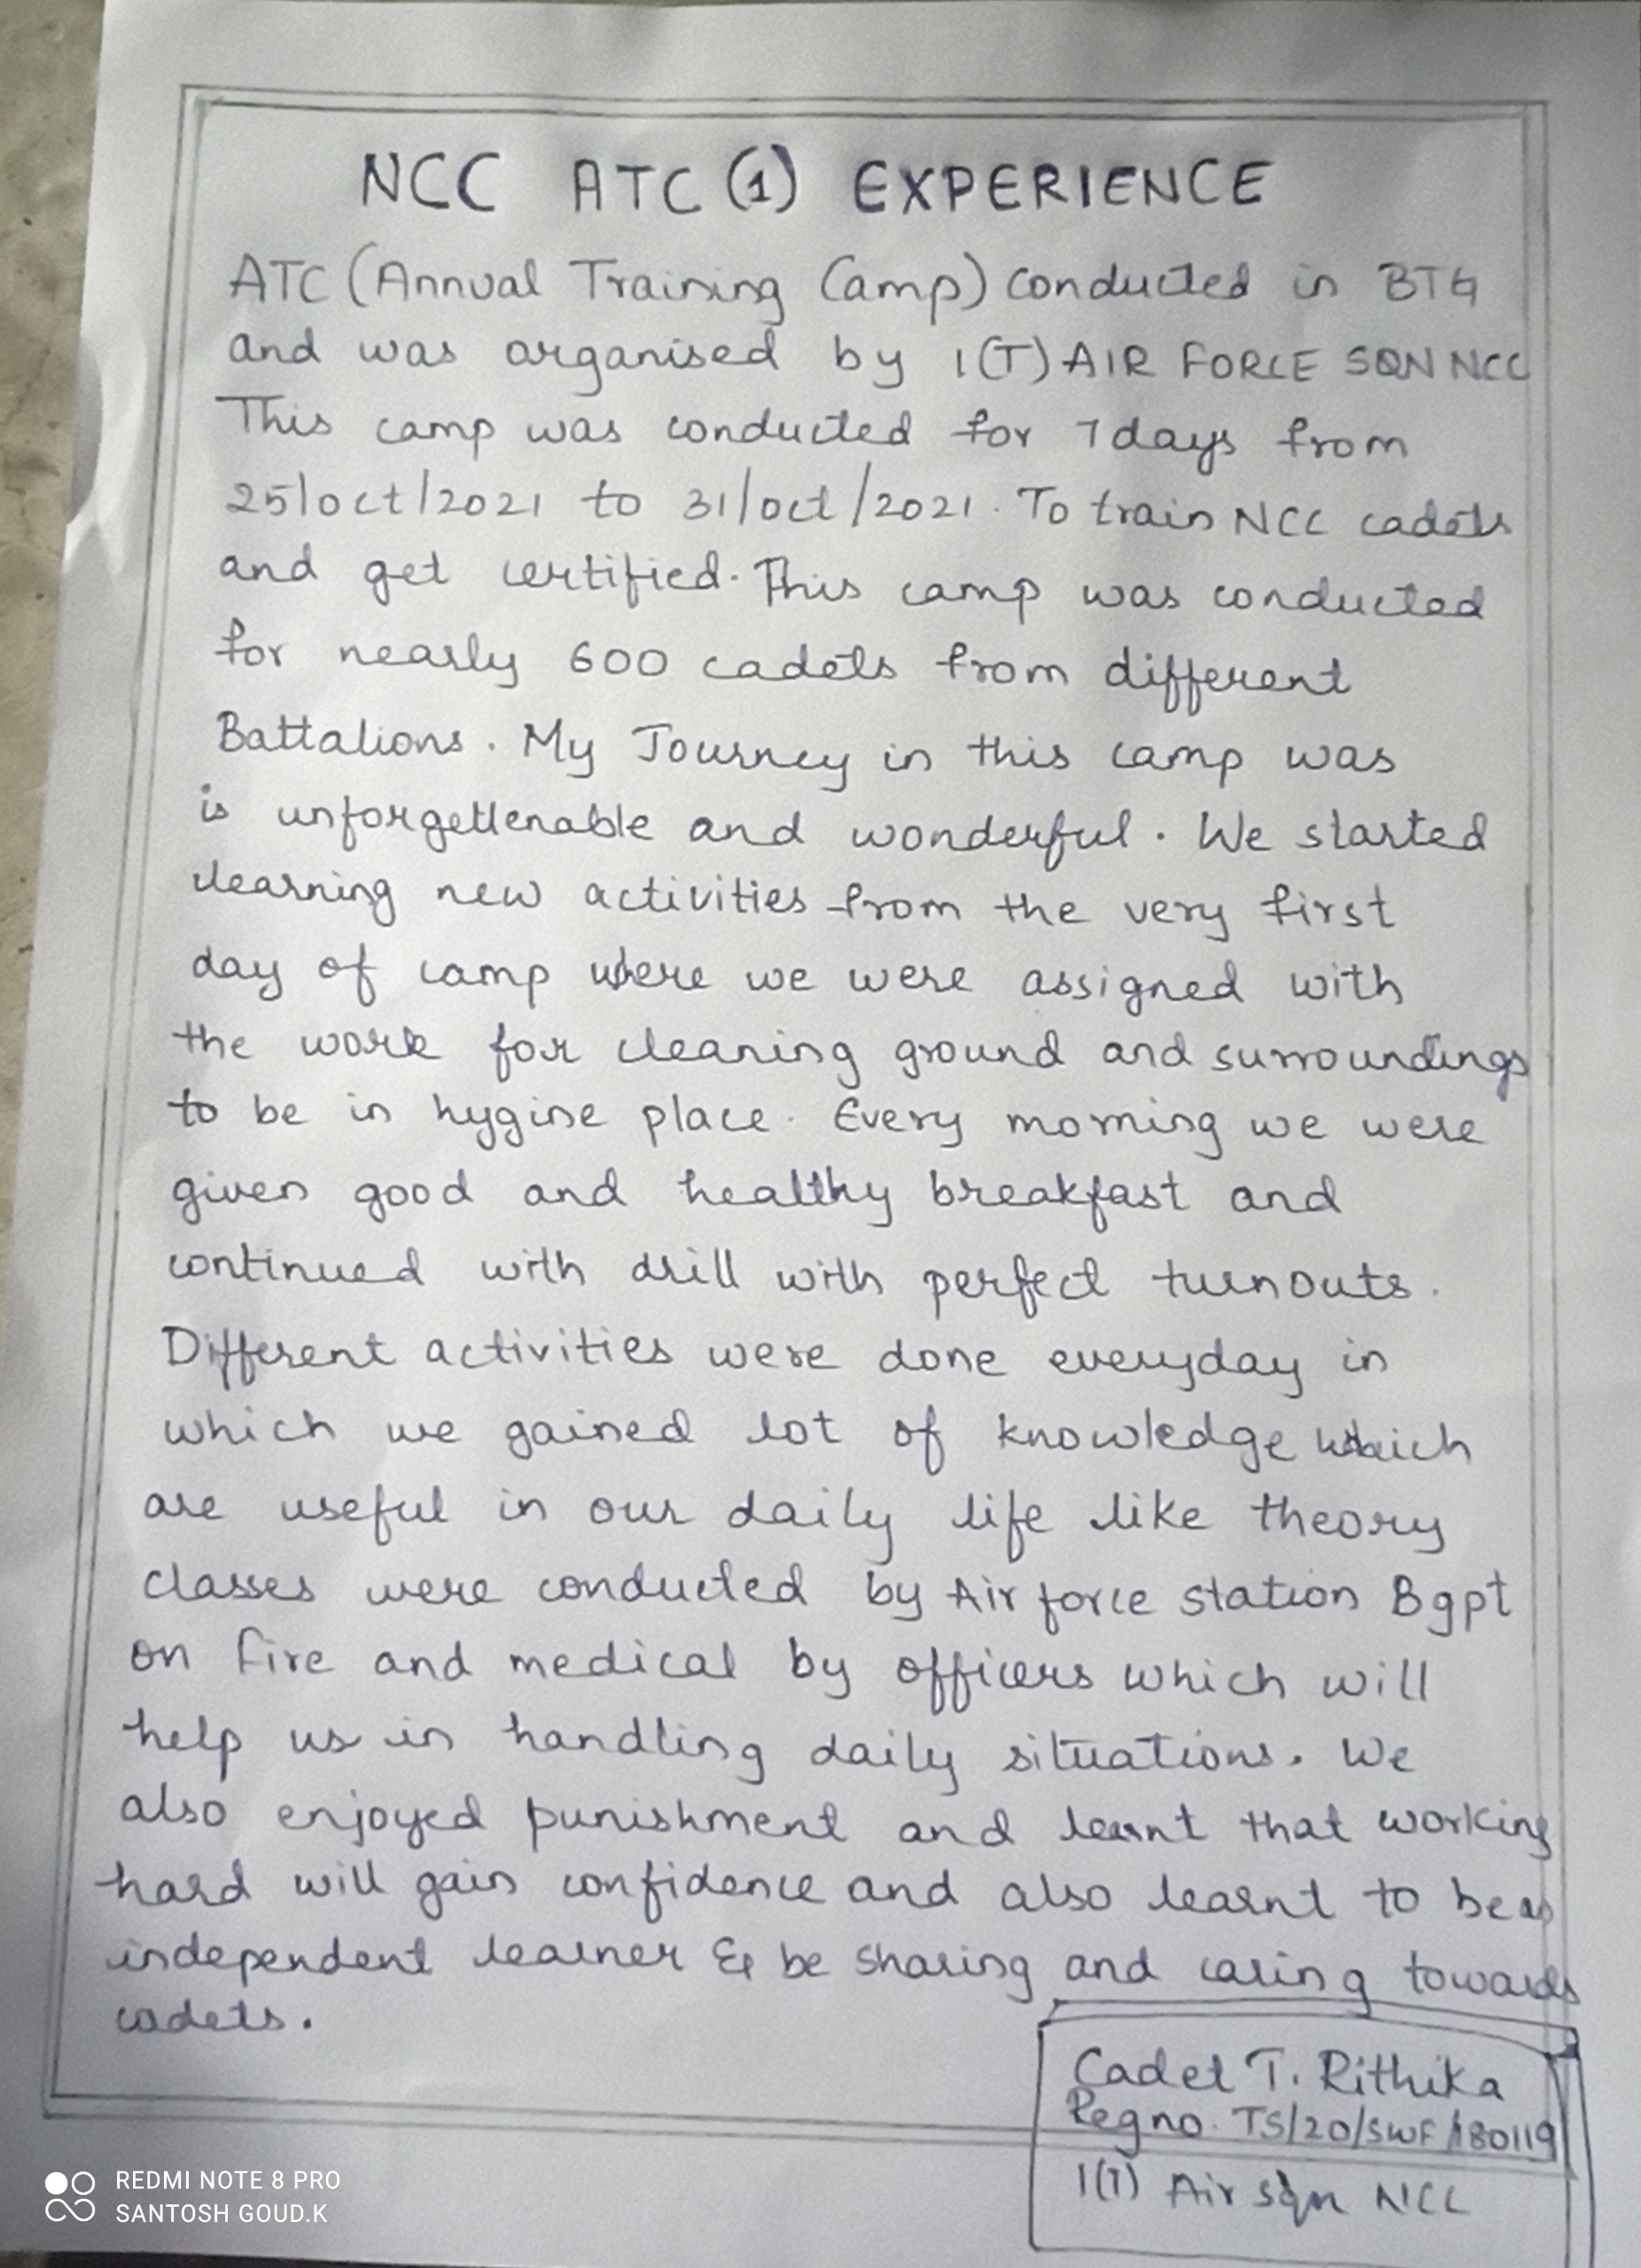 NCC ATC (1) EXPERIENCE
ATC (Annual Training Camp) conducted in BTG
and was organised by 1(T) AIR FORCE SQN NCC
This camp was conducted for 7 days from
25/oct/2021 to 31/oct/2021. To train NCC cadets
and get certified. This camp was conducted
for nearly 600 cadets from different
Battalions. My Journey in this camp was
is unforgettenable and wonderful. We started
learning new activities from the very first
day of camp where we were assigned with
the work for cleaning ground and surroundings
to be in hygine place. Every morning we were
given good and healthy breakfast and
continued with drill with perfect turnouts.
Different activities were done everyday in
which we gained lot of knowledge which
are useful in our daily life like theory
classes were conducted by Air force station Bgpt
on fire and medical by officers which will
help us in handling daily situations. We
also enjoyed punishment and learnt that working
hard will gain confidence and also learnt to be as
independent learner & be sharing and caring towards
cadets.
Cadet T. Rithika
Regno. TS/20/SWF/180119
1(T) Air sqn NCC
REDMI NOTE 8 PRO
SANTOSH GOUD.K